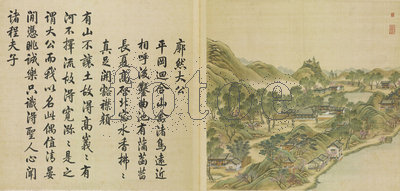 廓然大公
平岡回合山禽渚鳥遠近
相呼後鑿曲池有蒲菡萏
長夏高啓北窗水香拂拂
真足開豁襟顏
有山不讓土故得高峩峩有
河不擇流故得寬瀰瀰是之
謂大公而我以名此偶值清晏
閒憑眺誠樂只識得聖人心聞
諸程夫子